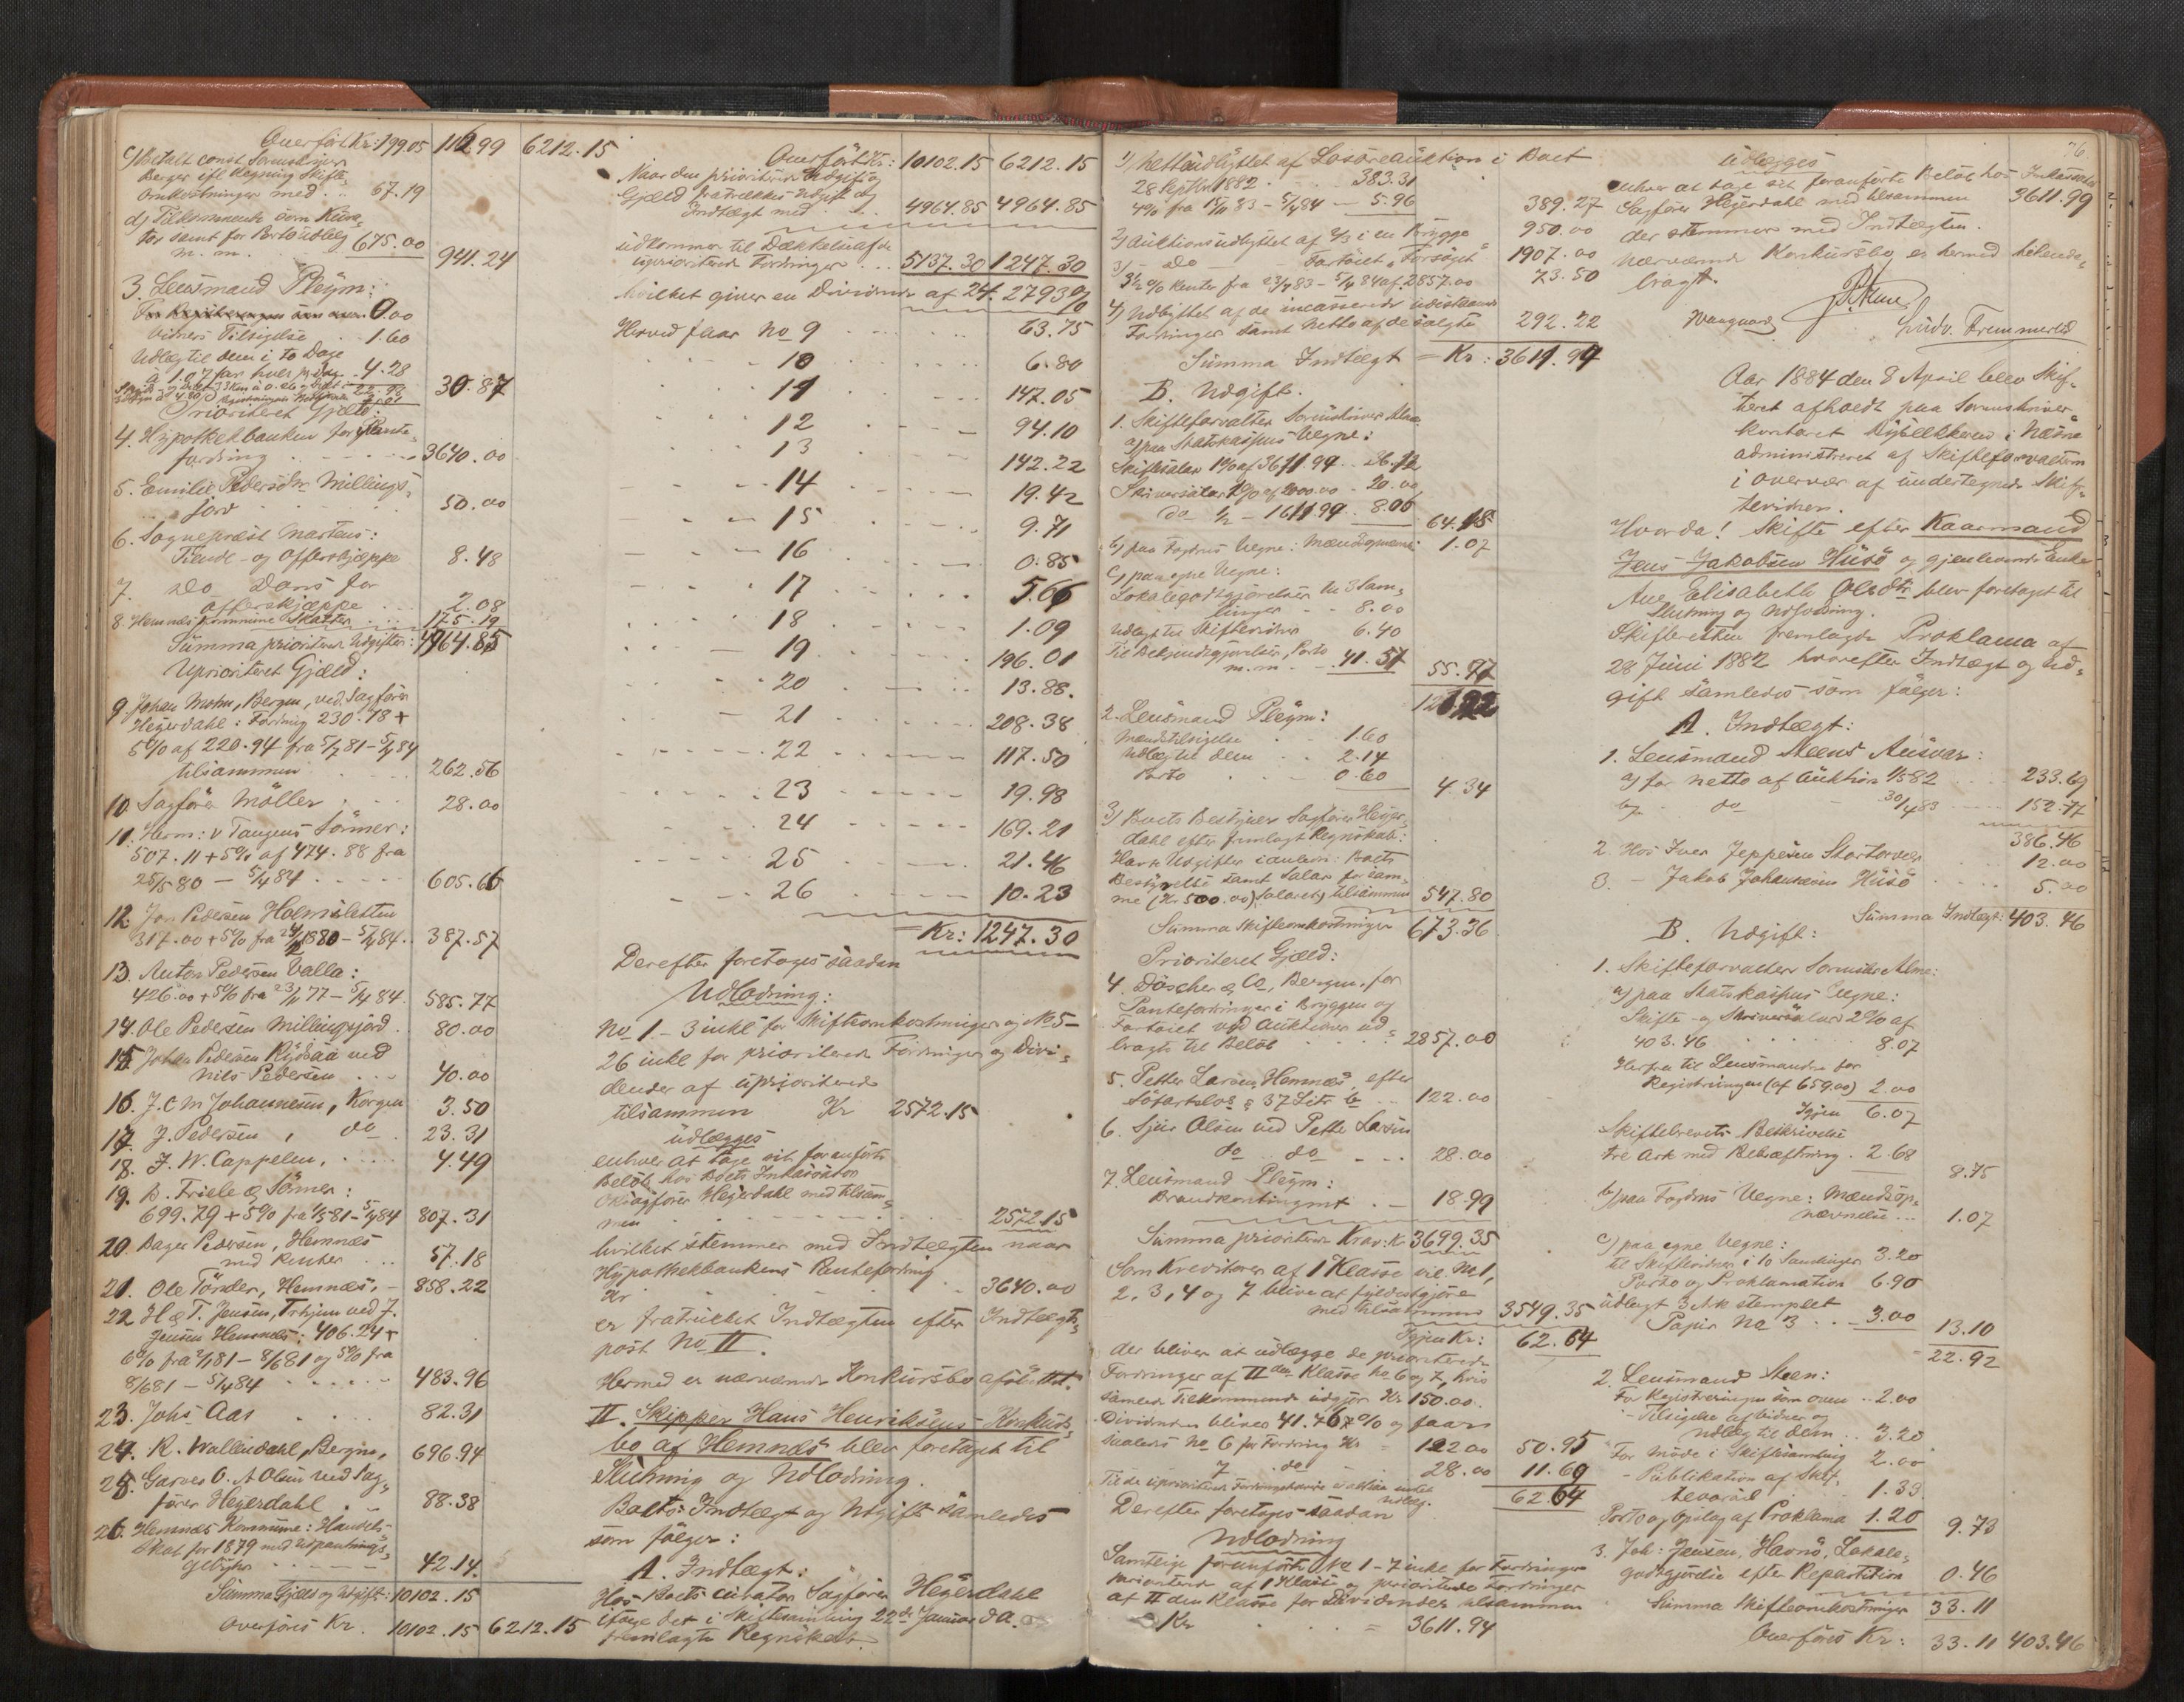 Overført Kr: 199.05 116.99 6212.15
c) Betalt const. Sorenskriver
Berger ifl. Regning Skifte-
omkostninger med . . 67.19
d) Tilkommende som Kura-
tor samt for Portoudlæg
m. m. 675.00 941.24
3. Lensmand Pleym:
Vidners Tilsigelse . 1.60
Udlæg til dem i to Dage
à 1.07 for hver pr. Dag . 4.28
30.87
Prioriteret Gjæld:
4. Hypothekbanken for Pante-
fordring . . . . 3640.00
5. Emilie Pedersdtr. Millings-
jord 50.00
6. Sogneprest Martens:
Tiende- og Offerskjæppe 8.48
7. Do Dons for
Offerskjæppe . . 2.08
8. Hemnæs Kommune Skatter . . 175.19
Summa prioriterede Udgifter: 4964.85
Uprioriteret Gjæld:
9. Johan Mohn, Bergen, ved Sagfører
Hegerdahl: Fordring 230.78 +
5% af 220.94 fra 5/7 81 – 5/4 84
tilsammen 262.56
10. Sagfører Møller . . . 28.00
11. Herm: v Tangens Sønner:
507.11 + 5% af 474.88 fra
25/5 80 – 5/4 84 . . . . 605.66
12. Jon Pedersen Holmsletten
317.00 + 5% fra 1880 – 5/4 84 . . 387.57
13. Anton Pedersen Valla:
426.00 + 5% fra 23/11 77 – 5/4 84 . 585.77
14. Ole Pedersen Millingsjord . 80.00
15. Johan Pedersen Rydsaa ved
Nils Pedersen . . . 40.00
16. J. C M Johannesen, Korgen 3.50
17. J. Pedersen, do . 23.31
18. J. W. Cappelen, . . . . 4.49
19. B. Friele & Sønner:
699.79 + 5% fra 1/3 81 – 5/4 84 807.31
20. Dager Pedersen, Hemnæs
med Renter . . . 57.18
21. Ole Tønder, Hemnæs, – 858.22
22. H & T. Jensen, Trhjem ved J.
Jensen Hemnæs: 406.24 +
6% fra 2/1 81 – 8/6 81 og 5% fra
8/6 81 – 5/4 84 . . . . . 483.96
23. Johs Aas . . . . 82.31
24. R. Wallendahl, Bergen, 696.94
25. Garver O. A Olsen ved Sag-
fører Hegerdahl . . 88.38
26. Hemnæs Kommune: Handels-
skat for 1879 med Udpantnings-
gebyhr . . . . 42.14.
Summa Gjæld og Udgift: 10102.15
Overføres Kr. 10102.15 6212.15
Overført Kr: 10102.15 6212.15
Naar den prioriterede Udgift og
Gjæld fratrækkes Udgift og
Indtægt med . . . 4964.85 4964.85
udkommer til Dækkelse af de
uprioriterede Fordringer . . . 5137.30 1247.30
hvilket giver en Dividende af 24.2793 %
Herved faar No 9 . . . 63.75
10 . . . 6.80
11 . . . 147.05
12 . . . 94.10
13 . . . 142.22
14 . . . 19.42
15 . . . 9.71
16 . . . 0.85
17 . . . 5.66
18 . . . 1.09
19 . . . 196.01
20 . . . 13.88.
21 . . . 208.38
22 . . . 117.50
23 . . . 19.98
24 . . . 169.21
25 . . . 21.46
26 . . . 10.23
= Kr: 1247.30
Derefter foretoges saadan
Udlodning:
No 1–3 inkl for Skifteomkostninger og No 5–
26 inkl for prioriterede Fordringer og Divi-
dender af uprioriterede
tilsammen Kr 2572.15
udlægges
enhver at tage sit foranførte
Beløb hos Boets Inkassator
Sagfører Hegerdahl med tilsam-
men . . . . 2572.15
hvilket stemmer med Indtægten naar
Hypothekbankens Pantefordring
Kr . . . . . 3640.00
er fratrukket Indtægten efter Indtægts-
post No II.
Hermed er nærværende Konkursbo afsluttet.
II. Skipper Hans Henriksens Konkurs-
bo af Hemnæs blev foretaget til
Slutning og Udlodning.
Boets Indtægt og Udgift samledes
som følger:
A. Indtægt:
Hos Boets curator Sagfører Hegerdahl
ifølge det i Skiftesamling 22de Januar d A.
fremlagte Regnskab.
1) Nettoudbyttet af Løsøreauktion i Boet
28 Septbr 1882 . . . 383.31
4% fra 15/11 83 – 5/4 84 – 5.96 389.27
2) Auktionsudbyttet af 2/3 i en Brygge 950.00
3) – do – Fartøiet „Forsøget" 1907.00
3½% Renter fra 23/7 83 – 5/4 84 af 2857.00 73.50
4) Udbyttet af de incasserede udestaaende
Fordringer samt Netto af de solgte 292.22
Summa Indtægt = Kr: 3611.99
B. Udgift.
1. Skifteforvalter Sorenskriver Alme.
a) paa Statskassens Vegne:
Skiftesalær 1% af 3611.99 . . 36.12
Skriversalær 1% af 2000.00 – 20.00
do ½ – 1611.99 . . 8.06 64.18
b) paa Fogdens Vegne: Mændsopnævn: 1.07
c) paa egne Vegne:
Lokalegodtgjørelser til 3 Sam-
linger . . 8.00
Udlagt til Skiftevidner 6.40
Til Bekjendtgjørelser, Porto
m.m. . – 41.57 55.97
121.22
2. Lensmand Pleym:
Mændstilsigelse . . 1.60
Udlæg til dem . . 2.14
Porto . . – 0.60 4.34
3) Boets Bestyrer Sagfører Heger-
dahl efter fremlagt Regnskab:
Havte Udgifter i anledn: Boets
Bestyrelse samt Salær for sam-
me (Kr 500.00 Salæret) tilsammen 547.80
Summa Skifteomkostninger 673.36
Prioriteret Gjæld:
4. Döscher & Co, Bergen, for
Pantefordringer i Bryggen og
Fartøiet ved Auktioner ud-
bragt til Beløb . . . 2857.00
5. Petter Larsen, Hemnæs, efter
Søfartslov § 37 Litr b . . . 122.00
6. Sjur Olsen ved Petter Larsen
do do – – . 28.00
7. Lensmand Pleym:
Brandkontingent . – 18.99
Summa prioriterede Krav: Kr 3699.35
Som Kreditorer af I Klasse vil No 1,
2, 3, 4 og 7 blive at fyldestgjøre
med tilsammen 3549.35
Igjen Kr: 62.64
der bliver at udlægge de prioriterede
Fordringer af II den Klasse No 6 og 7, hvis
samlede Tilkommende udgjør Kr 150.00.
Dividenden bliver 41.767% og faar
saaledes No 6 for Fordring Kr = 122.00 50.95
7 do – 28.00 11.69
Til de uprioriterede Fordringshavere er altsaa intet
Udlæg. 62.64
Derefter foretoges saadan
Udlodning
Samtlige foranførte No 1–7 inkl for Fordringer
prioriterede af I Klasse og prioriterede Fordringer
af II den Klasse for Dividender tilsammen
Kr . . . = 3611.94
76
udlægges
enhver at tage sit foranførte Beløb hos Inkassator
Sagfører Hegerdahl med tilsammen 3611.99
der stemmer med Indtægten.
Nærværende Konkursbo er hermed tilende-
bragt.
Ludv. Fremmerlid
Aar 1884 den 8 April blev Skif-
teret afholdt paa Sorenskriver-
kontoret Dybækkeren i Næsna
administreret af Skifteforvalteren
i Overvær af undertegnede Skif-
tevidner.
Hvorda! Skifte efter Kaarmand
Jens Jakobsen Husø og gjenlevende Enke
Ane Elisabeth Olsdtr blev foretaget til
Slutning og Udlodning.
Skifteretten fremlagde Proklama af
28 Juni 1882 hvorefter Indtægt og Ud-
gift samledes som følger:
A. Indtægt:
1. Lensmand Steens Ansvar:
a) for netto af Auktion 82 . . . 233.69
b) – do – 30/4 83 . . . 152.77
386.46
2. Hos Iver Jeppesen Stortorvær 12.00
3. – Jakob Johannesen Husø . . . 5.00
Summa Indtægt: 403.46
B. Udgift:
1. Skifteforvalter Sorenskr Alme:
a) paa Statskassens Vegne:
Skifte- og Skriversalær 2% af
403.46 . . . . . 8.07
Herfra til Lensmanden for
Registreringen (af 659.00) 2.00
Igjen 6.07
Skiftebrevets Beskrivelse
tre Ark med Bekræftning . 2.68
8.75
b) paa Fogdens Vegne: Mændsop-
nævnelse . . . 1.07
c) paa egne Vegne:
til Skiftevidner i 10 Samlinger 3.20
Porto og Proklamation 6.90
udlagt 3 Ark stemplet
Papir No 3 . . – 3.00 13.10
22.92
2. Lensmand Steen:
For Registreringen som oven . . 2.00
– Tilsigelse af Vidner og
Udlæg til dem . . 3.20
For Møde i Skiftesamling 2.00
– Publikation af Skif-
tevarsel 1.33
Porto og Opslag af Proklama 1.20 9.73
3. Joh: Jensen, Havnø, Lokale-
godtgjørelse efter Repartition 0.46
Summa Skifteomkostninger 33.11
Overføres Kr: 33.11 403.46